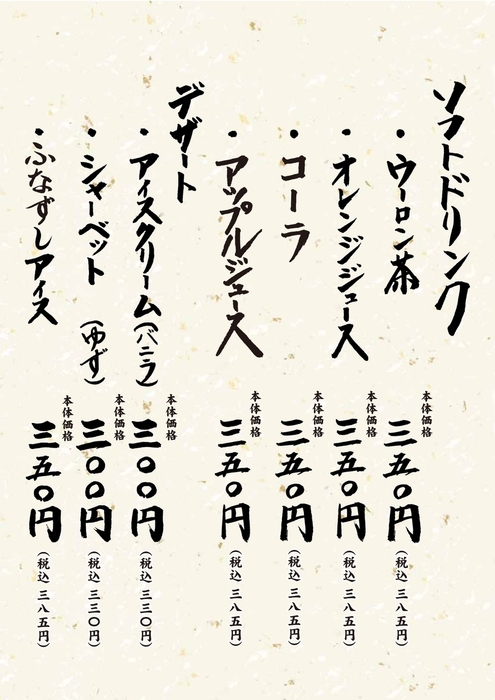 ソフトドリンク
・ウーロン茶
本体価格
三五〇円（税込 三八五円）
・オレンジジュース
本体価格
三五〇円（税込 三八五円）
・コーラ
本体価格
三五〇円（税込 三八五円）
・アップルジュース
本体価格
三五〇円（税込 三八五円）
デザート
・アイスクリーム（バニラ）
本体価格
三〇〇円（税込 三三〇円）
・シャーベット（ゆず）
本体価格
三〇〇円（税込 三三〇円）
・ふなずしアイス
本体価格
三五〇円（税込 三八五円）